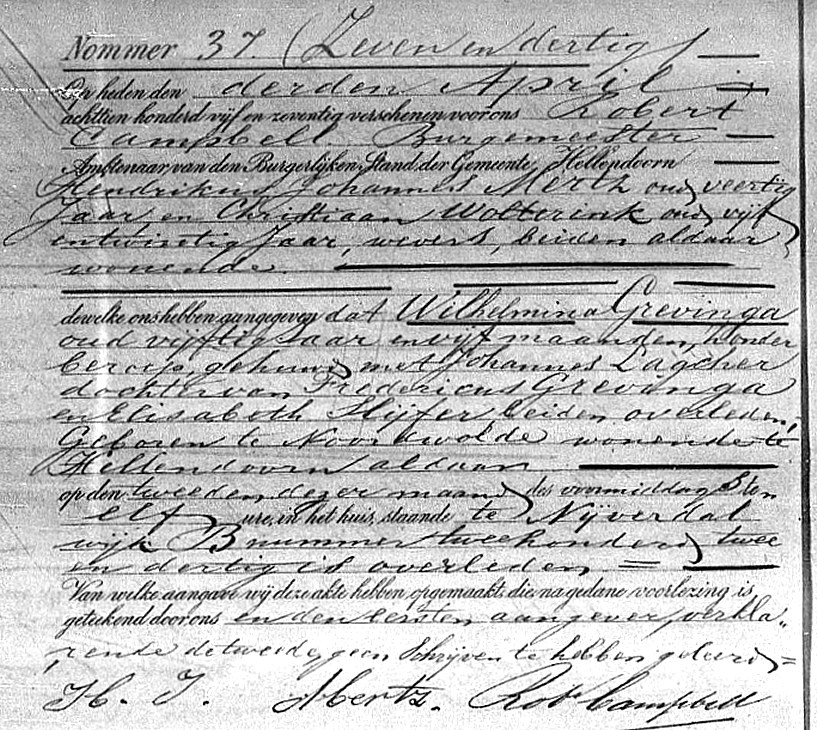 Nommer 37. (Zeven en dertig)
Op heden den derden April
achttien honderd vijf en zeventig verschenen voor ons Robert
Campbell Burgemeester
Ambtenaar van den Burgerlijken Stand der Gemeente Hellendoorn
Hendrikus Johannes Mertz oud veertig
Jaar en Christiaan Wolterink oud vijf
entwintig Jaar, wevers, beiden aldaar
wonende.
dewelke ons hebben aangegeven dat Wilhelmina Grevinga
oud vijftig Jaar en vijf maanden, Zonder
beroep, gehuwd met Johannes Lagcher
dochter van Fredericus Grevinga
en Elisabeth Slijfer, beiden overleden,
Geboren te Noordwolde wonende te
Hellendoorn aldaar
op den tweeden dezer maand des voormiddag S ten
elf ure, in het huis, staande te Nijverdal
wijk B nummer tweehonderd twee
en dertig is overleden =
Van welke aangave wij deze akte hebben opgemaakt, die na gedane voorlezing is
geteekend door ons en den eersten aangever, verkla„
„rende de tweede, geen Schrijven te hebben geleerd =
H. J. Mertz. Rob Campbell